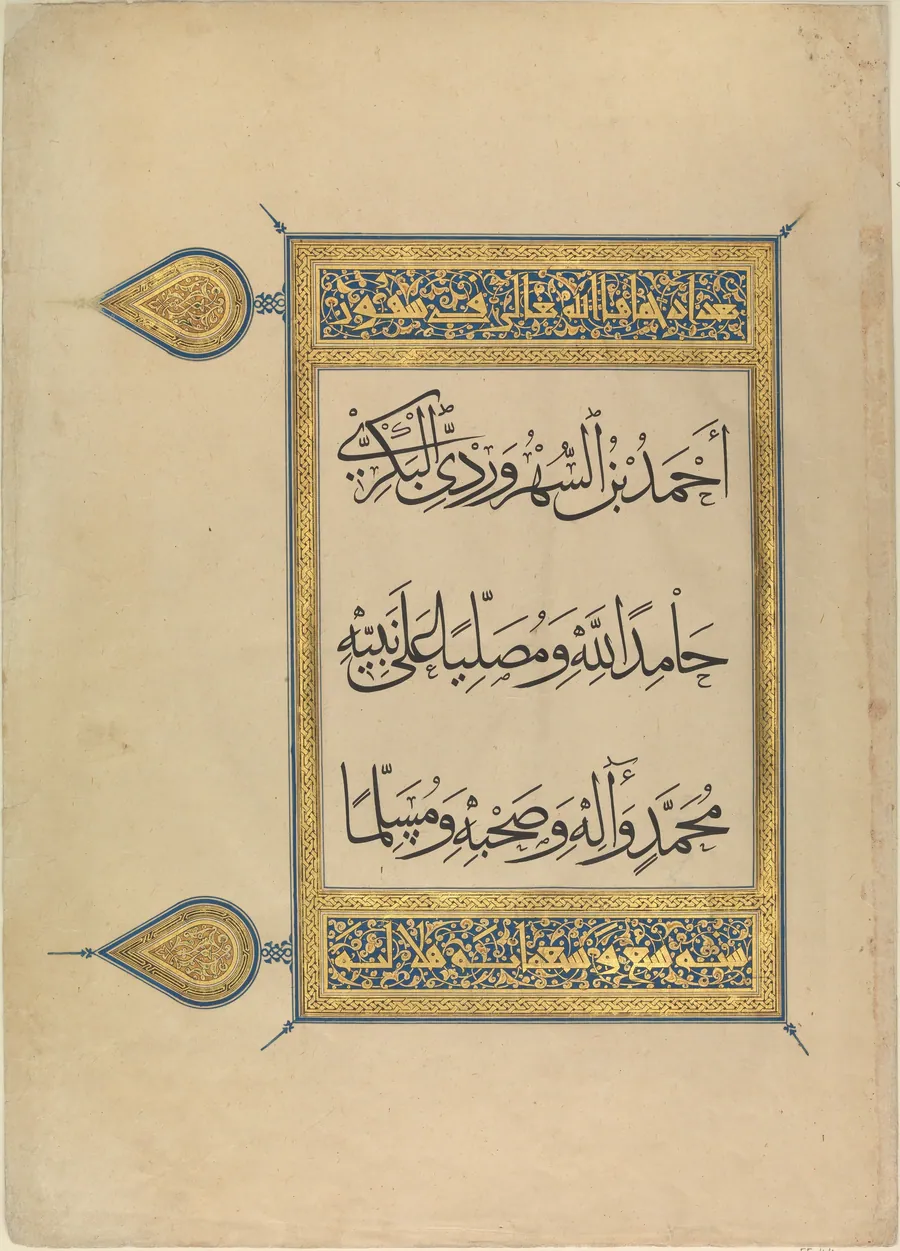 ببغداد حماها الله تعالى في شهور
أَحْمَدُ بْنُ السُّهْرَوَرْدِيِّ الْبَكْرِيُّ
حَامِدًا لِلَّهِ وَمُصَلِّيًا عَلَى نَبِيِّهِ
مُحَمَّدٍ وَآلِهِ وَصَحْبِهِ وَمُسَلِّمًا
سنة سبع وسبعمائة هلالية